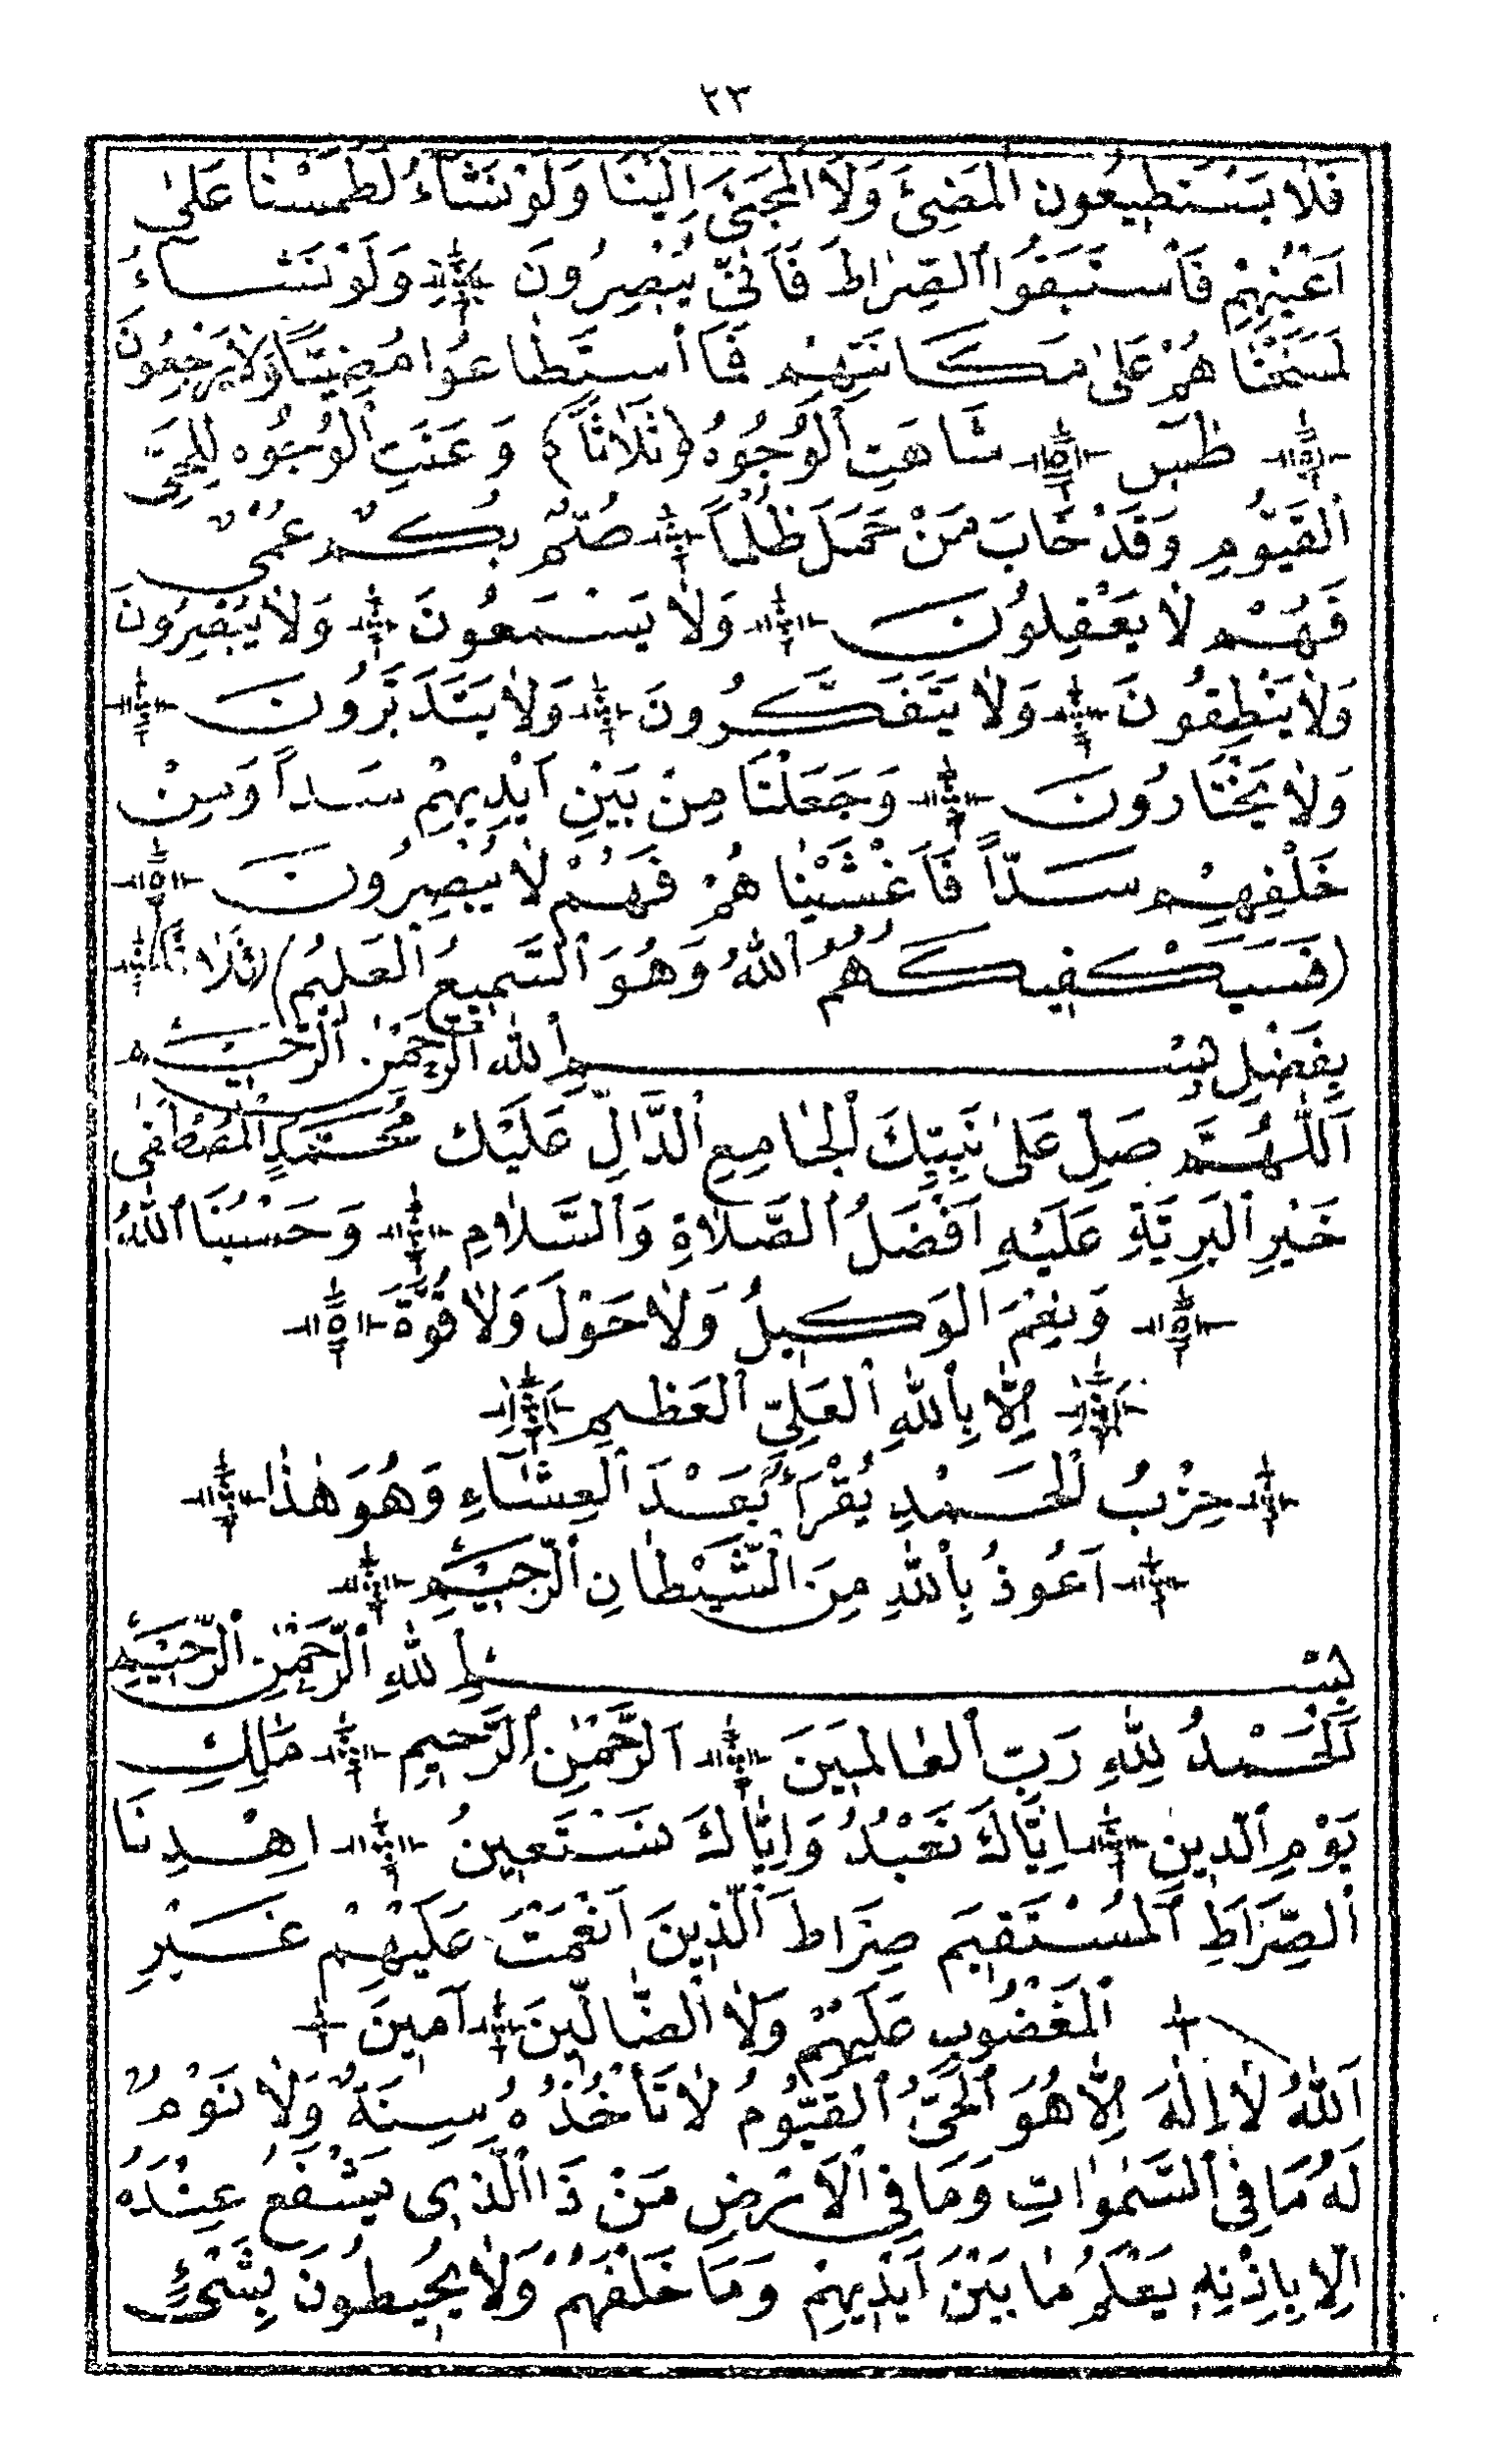 ٢٣
فَلَا يَسْتَطِيعُونَ الْمَضِىَّ وَلَا الْمَجِىءَ اِلَيْنَا وَلَوْ نَشَاءُ لَطَمَسْنَا عَلٰى
اَعْيُنِهِمْ فَاسْتَبَقُوا الصِّرَاطَ فَاَنّٰى يُبْصِرُونَ وَلَوْ نَشَاءُ
لَمَسَخْنَاهُمْ عَلٰى مَكَانَتِهِمْ فَمَا اسْتَطَاعُوا مُضِيًّا وَلَا يَرْجِعُونَ
طٰسٓ شَاهَتِ الْوُجُوهُ (ثَلَاثاً) وَعَنَتِ الْوُجُوهُ لِلْحَىِّ
الْقَيُّومِ وَقَدْ خَابَ مَنْ حَمَلَ ظُلْماً صُمٌّ بُكْمٌ عُمْىٌ
فَهُمْ لَا يَعْقِلُونَ وَلَا يَسْمَعُونَ وَلَا يُبْصِرُونَ
وَلَا يَنْطِقُونَ وَلَا يَتَفَكَّرُونَ وَلَا يَتَدَبَّرُونَ
وَلَا يَخْتَارُونَ وَجَعَلْنَا مِنْ بَيْنِ اَيْدِيهِمْ سَداً وَمِنْ
خَلْفِهِمْ سَدّاً فَاَغْشَيْنَاهُمْ فَهُمْ لَا يُبْصِرُونَ
(فَسَيَكْفِيكَهُمُ اللّٰهُ وَهُوَ السَّمِيعُ الْعَلِيمُ) (ثَلَاثاً)
بِفَضْلِ بِسْمِ اللّٰهِ الرَّحْمٰنِ الرَّحِيمِ
اَللّٰهُمَّ صَلِّ عَلٰى نَبِيِّكَ الْجَامِعِ الدَّالِّ عَلَيْكَ مُحَمَّدٍ الْمُصْطَفٰى
خَيْرِ الْبَرِيَّةِ عَلَيْهِ اَفْضَلُ الصَّلَاةِ وَالسَّلَامِ وَحَسْبُنَا اللّٰهُ
وَنِعْمَ الْوَكِيلُ وَلَا حَوْلَ وَلَا قُوَّةَ
اِلَّا بِاللّٰهِ الْعَلِىِّ الْعَظِيمِ
حِزْبُ الْحَمْدِ يُقْرَأُ بَعْدَ الْعِشَاءِ وَهُوَ هٰذَا
اَعُوذُ بِاللّٰهِ مِنَ الشَّيْطَانِ الرَّجِيمِ
بِسْمِ اللّٰهِ الرَّحْمٰنِ الرَّحِيمِ
اَلْحَمْدُ لِلّٰهِ رَبِّ الْعَالَمِينَ اَلرَّحْمٰنِ الرَّحِيمِ مَالِكِ
يَوْمِ الدِّينِ اِيَّاكَ نَعْبُدُ وَاِيَّاكَ نَسْتَعِينُ اِهْدِنَا
الصِّرَاطَ الْمُسْتَقِيمَ صِرَاطَ الَّذِينَ اَنْعَمْتَ عَلَيْهِمْ غَيْرِ
الْمَغْضُوبِ عَلَيْهِمْ وَلَا الضَّالِّينَ آمِينَ
اَللّٰهُ لَا اِلٰهَ اِلَّا هُوَ الْحَىُّ الْقَيُّومُ لَا تَأْخُذُهُ سِنَةٌ وَلَا نَوْمٌ
لَهُ مَا فِى السَّمٰوَاتِ وَمَا فِى الْاَرْضِ مَنْ ذَا الَّذِى يَشْفَعُ عِنْدَهُ
اِلَّا بِاِذْنِهِ يَعْلَمُ مَا بَيْنَ اَيْدِيهِمْ وَمَا خَلْفَهُمْ وَلَا يُحِيطُونَ بِشَىْءٍ